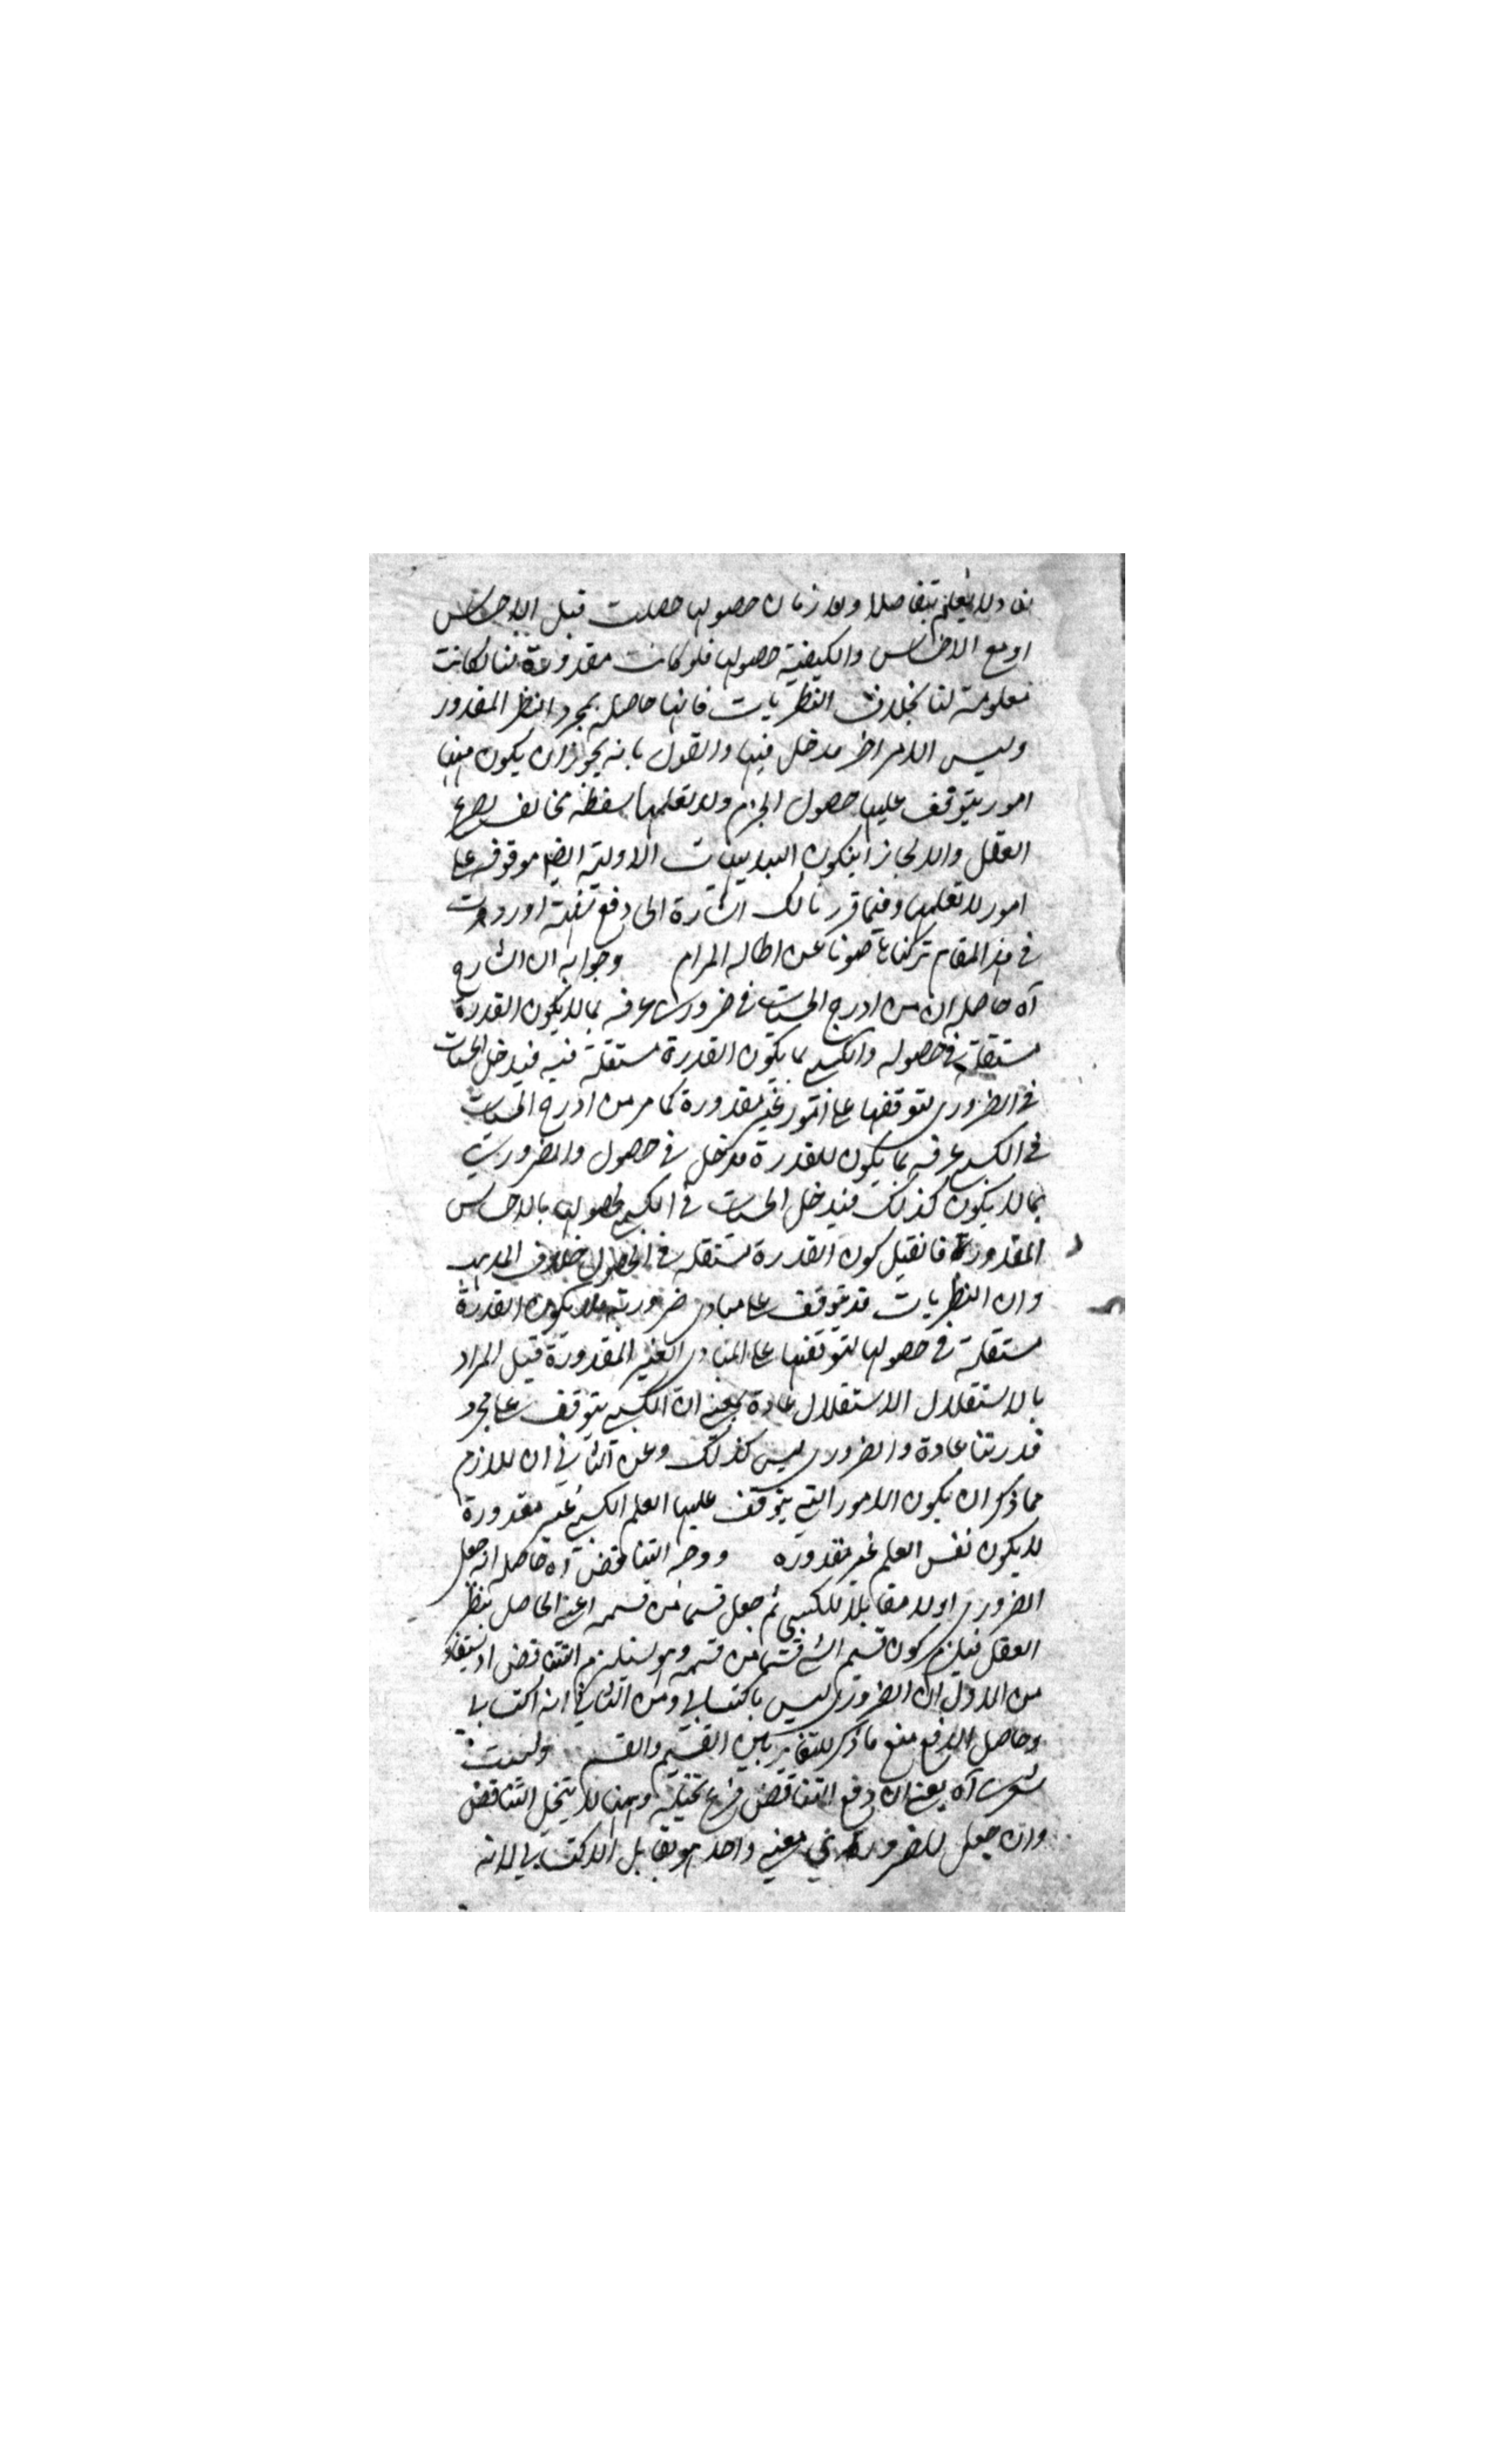 ولا نعلم تفاصيلها ولا زمان حصولها حصلت قبل الاحساس
او مع الاحساس والكيفية حصولها فلو كانت مقدورة لنا لكانت
معلومة لنا بخلاف النظريات فانها حاصلة بمجرد النظر المقدور
وليس لامر اخر مدخل فيها والقول بانه يجوز ان يكون فيها
امور يتوقف عليها حصول الجزم ولا نعلمها سفسطة مخالف لصريح
العقل والا لجاز ان يكون البديهيات الاولية ايضا موقوفة على
امور لا نعلمها وفيما قررنا لك اشارة الى دفع اوردت
في هذا المقام تركناها صونا عن اطالة المرام وجوابه ان الشارح
آه حاصله ان من ادرج الحسيات في ضروري عرفه بما لا يكون القدرة
مستقلة في حصوله والكسبي بما يكون القدرة مستقلة فيه فيدخل الحسيات
في الضروري لتوقفها على امور غير مقدورة كما مر من ادرج الحسيات
في الكسبي عرفه بما يكون للقدرة مدخل في حصول والضروري
بما لا يكون كذلك فيدخل الحسيات في الكسبي لحصولها بالاحساس
المقدورة فان قيل كون القدرة مستقلة في الحصول خلاف المذهب
وان النظريات قد يتوقف على مبادي ضرورية فلا يكون القدرة
مستقلة في حصولها لتوقفها على المبادي الغير المقدورة قيل المراد
بالاستقلال الاستقلال عادة بمعنى ان الكسبي يتوقف على مجرد
قدرتنا عادة والضروري ليس كذلك وعن الثاني ان اللازم
مما ذكر ان يكون الامور التي يتوقف عليها العلم الكسبي غير مقدورة
لا يكون نفس العلم غير مقدورة ووجه التناقض آه حاصله انه جعل
الضروري اولا مقابلا للكسبي ثم جعل قسما من قسمه اعني الحاصل بنظر
العقل فيلزم كون قسيم الشئ قسما من قسمه وهو يستلزم التناقض اذ يستفاد
من الاول ان الضروري ليس باكتسابي ومن الثاني انه اكتسابي
وحاصل الدفع منع ما ذكر للتغاير بين القسيم والقسم
آه يعني ان دفع التناقض فرع تخيله وههنا لا يتخيل التناقض
وان جعل للضروري معنى واحد هو مقابل الاكتسابي لانه